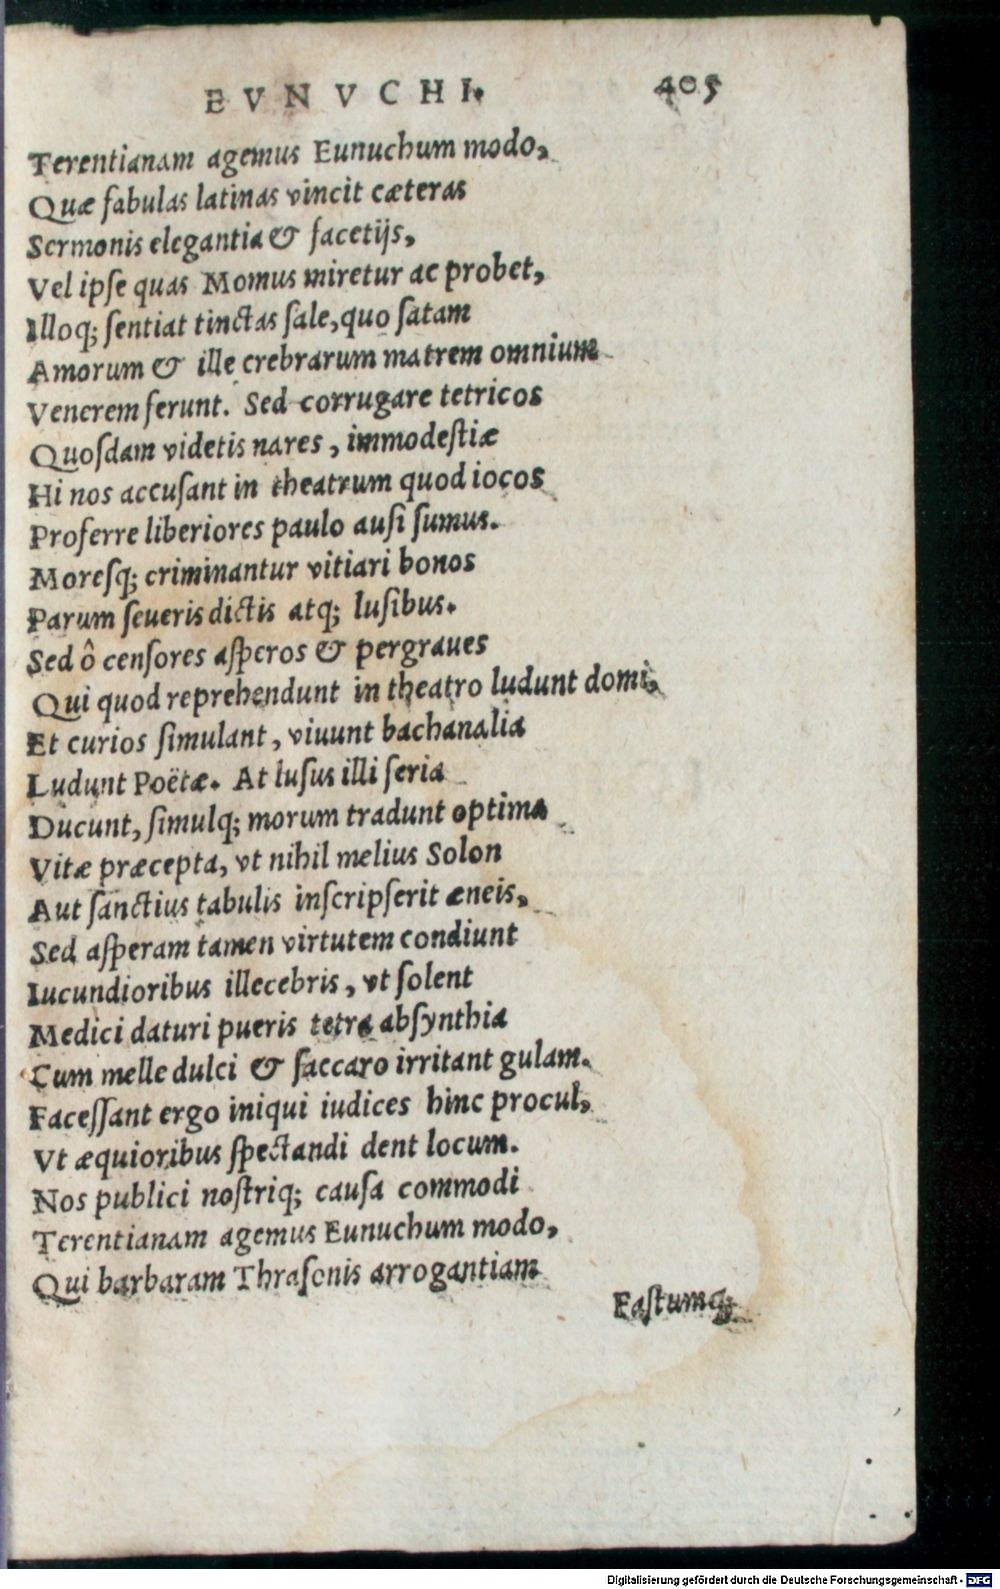 EVNVCHI. 405
Terentianam agemus Eunuchum modo,
Quæ fabulas latinas vincit cæteras
Sermonis elegantia & facetijs,
Vel ipſe quas Momus miretur ac probet,
Illoq; ſentiat tinctas ſale, quo ſatam
Amorum & ille crebrarum matrem omnium
Venerem ferunt. Sed corrugare tetricos
Quoſdam videtis nares, immodeſtiæ
Hi nos accuſant in theatrum quod iocos
Proferre liberiores paulo auſi ſumus.
Moreſq; criminantur vitiari bonos
Parum ſeueris dictis atq; luſibus.
Sed ô cenſores aſperos & pergraues
Qui quod reprehendunt in theatro ludunt domi,
Et curios ſimulant, viuunt bachanalia
Ludunt Poëtæ. At luſus illi ſeria
Ducunt, ſimulq; morum tradunt optima
Vitæ præcepta, vt nihil melius Solon
Aut ſanctius tabulis inſcripſerit æneis,
Sed aſperam tamen virtutem condiunt
Iucundioribus illecebris, vt ſolent
Medici daturi pueris tetra abſynthia
Cum melle dulci & ſaccaro irritant gulam.
Faceſſant ergo iniqui iudices hinc procul,
Vt æquioribus ſpectandi dent locum.
Nos publici noſtriq; cauſa commodi
Terentianam agemus Eunuchum modo,
Qui barbaram Thraſonis arrogantiam
Faſtumq;
Digitalisierung gefördert durch die Deutsche Forschungsgemeinschaft - DFG